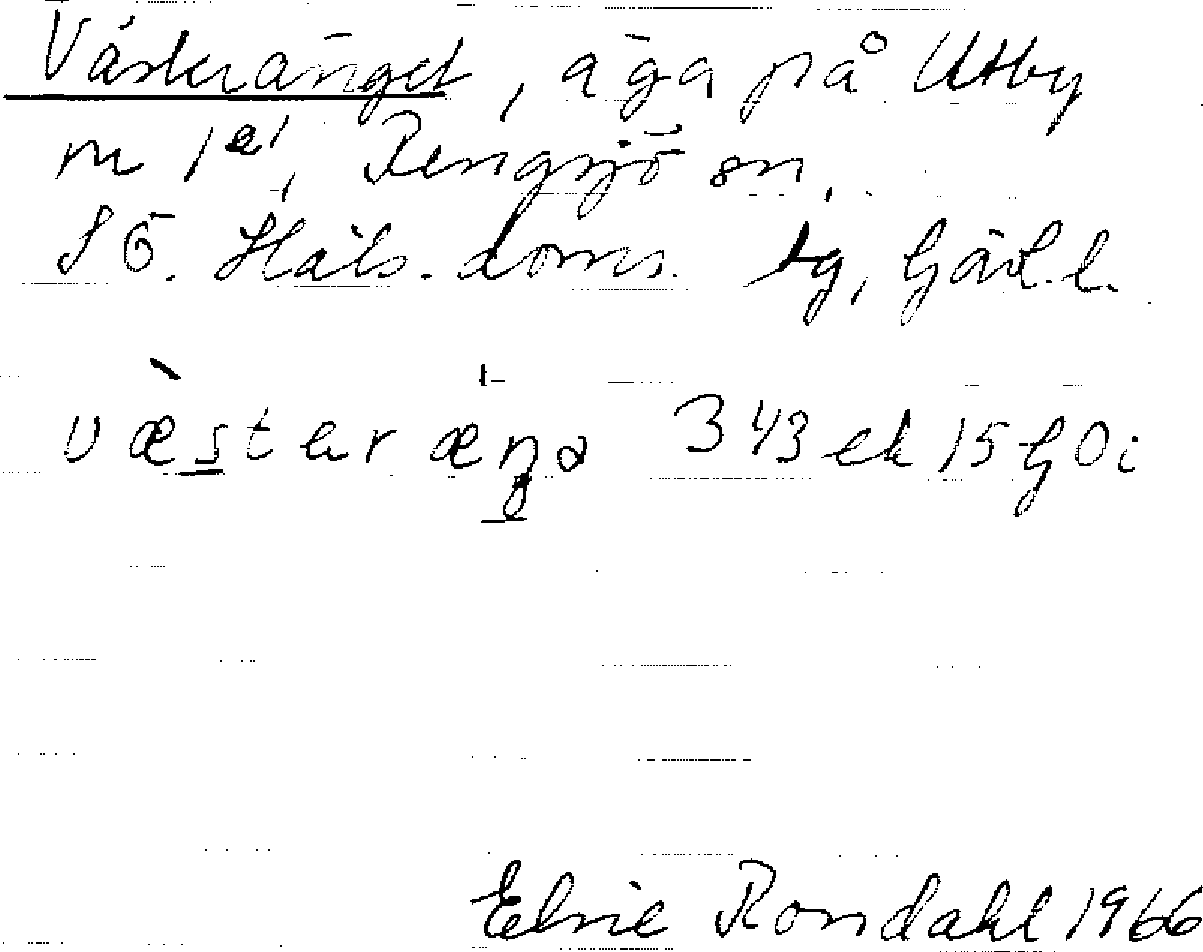 Västeränget, äga på Utby
nr 1a1, Rengsjö sn,
S ö. Häls. doms. tg, Gävl.l.
væsteræŋa 343 ek 15 G 0i
Elvie Rondahl 1966